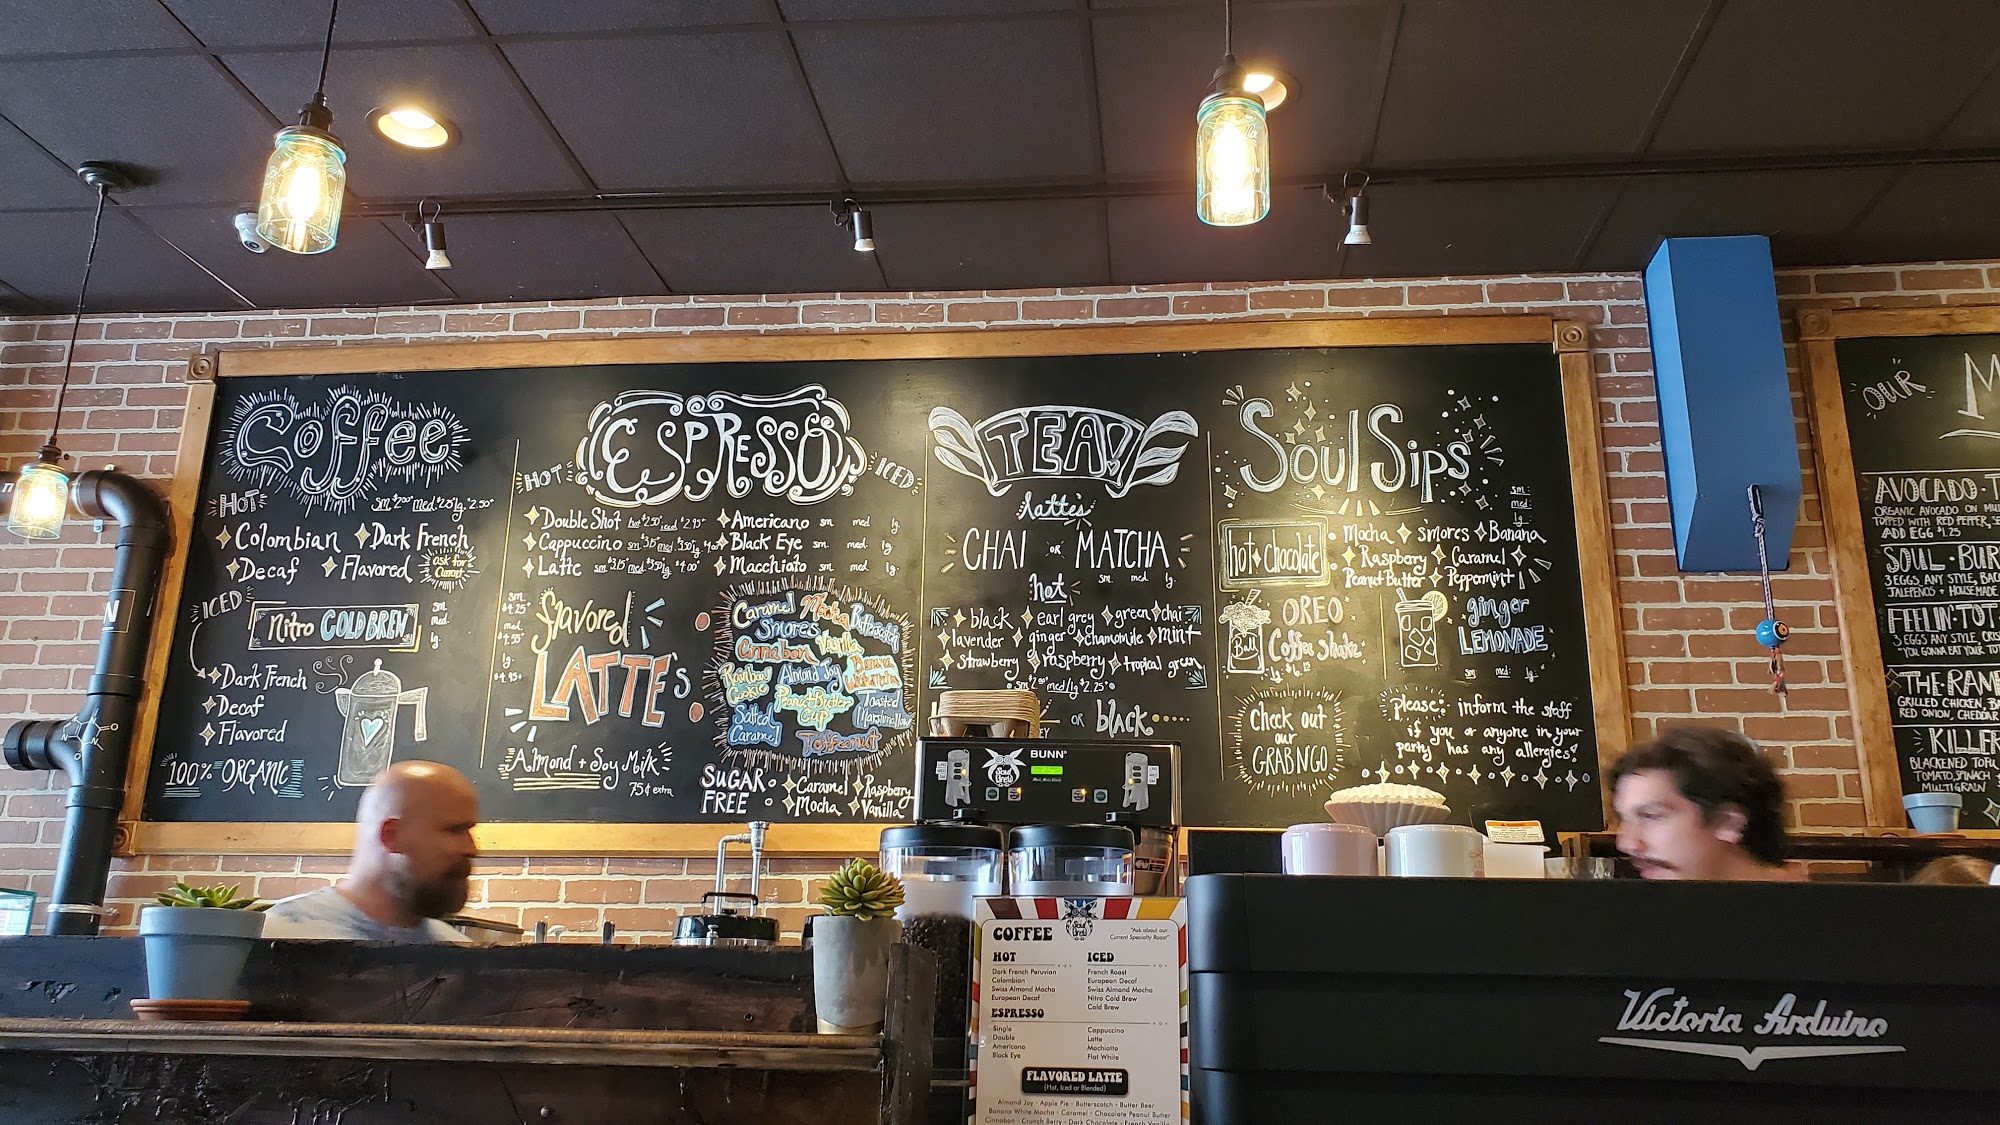 Coffee
HOT
sm. $2.00 med. $2.25 lg. $2.50
Colombian Dark French
Decaf Flavored
ask for Current
ICED
Nitro COLD BREW
sm.
med.
lg.
Dark French
Decaf
Flavored
100% ORGANIC
HOT ESPRESSO ICED
Double Shot hot $2.50 iced $2.95
Cappuccino sm. $3.15 med. $3.50 lg. 4.00
Latte sm. $3.15 med. $3.50 lg. $4.00
Americano sm. med. lg.
Black Eye sm. med. lg.
Macchiato sm. med. lg.
sm.
$4.25
med.
$4.55
lg.
$4.95
flavored
LATTE's
Almond + Soy Milk
75¢ extra
Caramel Mocha Butterscotch
S'mores Vanilla
Cinnabon
Rainbow Cookie Almond Joy Banana White Mocha
Peanut Butter Cup Toasted Marshmallow
Salted Caramel
Toffeenut
SUGAR FREE
Caramel Raspberry
Mocha Vanilla
TEA!
latte's
CHAI or MATCHA
sm. med. lg.
hot
black earl grey green chai
lavender ginger chamomile mint
strawberry raspberry tropical green
sm $2.00 med/lg $2.25
OR black
Soul Sips
sm.
med.
lg.
hot chocolate
Mocha s'mores Banana
Raspberry Caramel
Peanut Butter Peppermint
Ball
OREO
Coffee Shake
ginger
LEMONADE
sm. med. lg.
Check out
our
GRAB N' GO
please: inform the staff
if you or anyone in your
party has any allergies!
OUR
AVOCADO
ORGANIC AVOCADO ON
TOPPED WITH RED PEPPER,
ADD EGG $1.25
SOUL
3 EGGS ANY STYLE,
JALEPENOS + HOUSEMADE
FEELIN'
3 EGGS ANY STYLE,
YOU GONNA EAT YOUR
THE
GRILLED CHICKEN,
RED ONION, CHEDDAR
KILLER
BLACKENED TOFU
TOMATO, SPINACH
MULTIGRAIN
BUNN
Soul Brew
COFFEE
Soul Brew
"Ask about our
Current Specialty Roast"
HOT
Dark French Peruvian
Colombian
Swiss Almond Mocha
European Decaf
ICED
French Roast
European Decaf
Swiss Almond Mocha
Nitro Cold Brew
Cold Brew
ESPRESSO
Single
Double
Americano
Black Eye
Cappuccino
Latte
Machiatto
Flat White
FLAVORED LATTE
(Hot, Iced or Blended)
Almond Joy - Apple Pie - Butterscotch - Butter Beer
Banana White Mocha - Caramel - Chocolate Peanut Butter
Cinnabon - Crunch Berry - Dark Chocolate - French Vanilla
Victoria Arduino